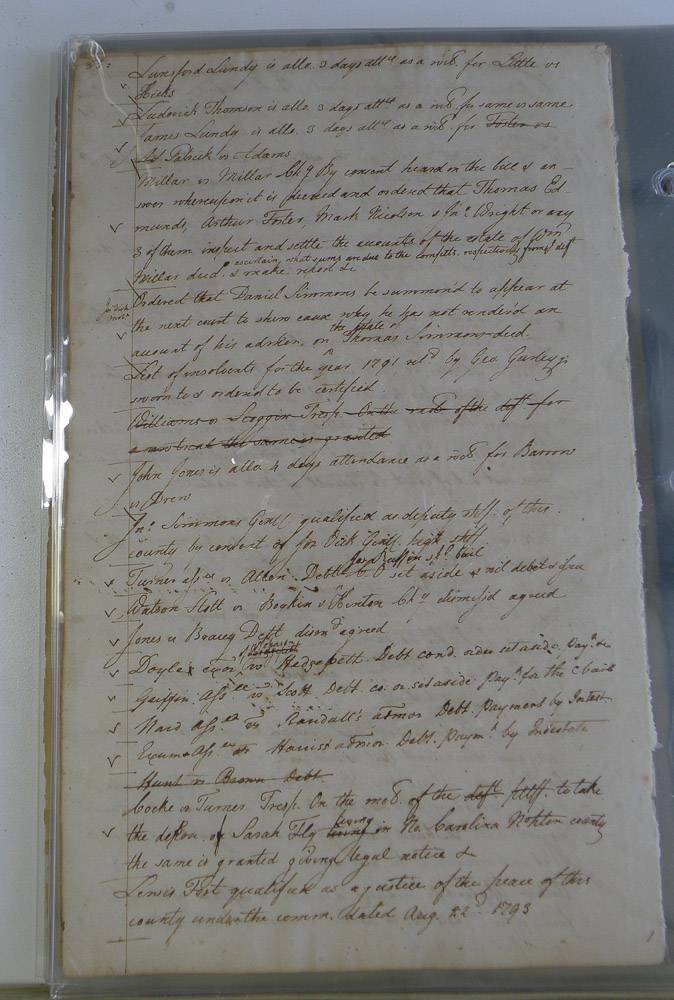 Lunsford Lundy is allo. 3 days attce as a witd. for Little vs
Hicks
Luderick Thomson is allo 3 days attce as a witd. for same vs same
James Lundy is allo. 3 days attce as a witd. for Foster vs
Patrick vs Adams
Millar vs Millar Chy By consent heard on the bill & an-
swer whereupon it is decreed and ordered that Thomas Ed
munds, Arthur Foster, Mark Nicolson & Jno. Wright or any
3 of them inspect and settle the accounts of the estate of Wm
ascertain, what sums are due to the complts. respectively from deft
Millar decd. & make report &c
Jo: Dick
Motn.
Ordered that Daniel Simmons be summon'd to appear at
the next court to shew cause why he has not render'd an
the estate of
account of his admon. on Thomas Simmons decd.
List of insolvents for the year 1791 retd by Geo. Gurley
sworn to & ordered to be certified
Williams vs Scoggin Tresp. On the motn of the deft for
a new trial the same is granted
John Jones is allo. 4 days attendance as a witd. for Barrow
vs Drew
Jno. Simmons Gent qualified as deputy shff. of this
county by consent of Jos Dick Gent. high shff
Turner assee vs Allen. Debt set aside & nil debet & issue
Watson & ux vs Boykin & Hinton Chy dismiss'd agreed
Jones vs Bracey Debt discond. agreed
Doyles exor. vs Hedgepeth Debt cond. order set aside Paymt. &c
Griffin Assee vs Scott Debt co. or. set aside paymt. for the bail
Ward assee vs Randall's admor Debt. payment by Intest
Exum Assee vs Harriss admor Debt. paymt. by Intestate
Hunt vs Brown Debt
Cocke vs Turner Tresp. On the motn. of the deft. pltff to take
living
the depon. of Sarah Fly living in No. Carolina Nohton county
the same is granted giving legal notice &
Lewis Fort qualified as a justice of the peace of this
county under the comm. dated Aug. 22d 1793